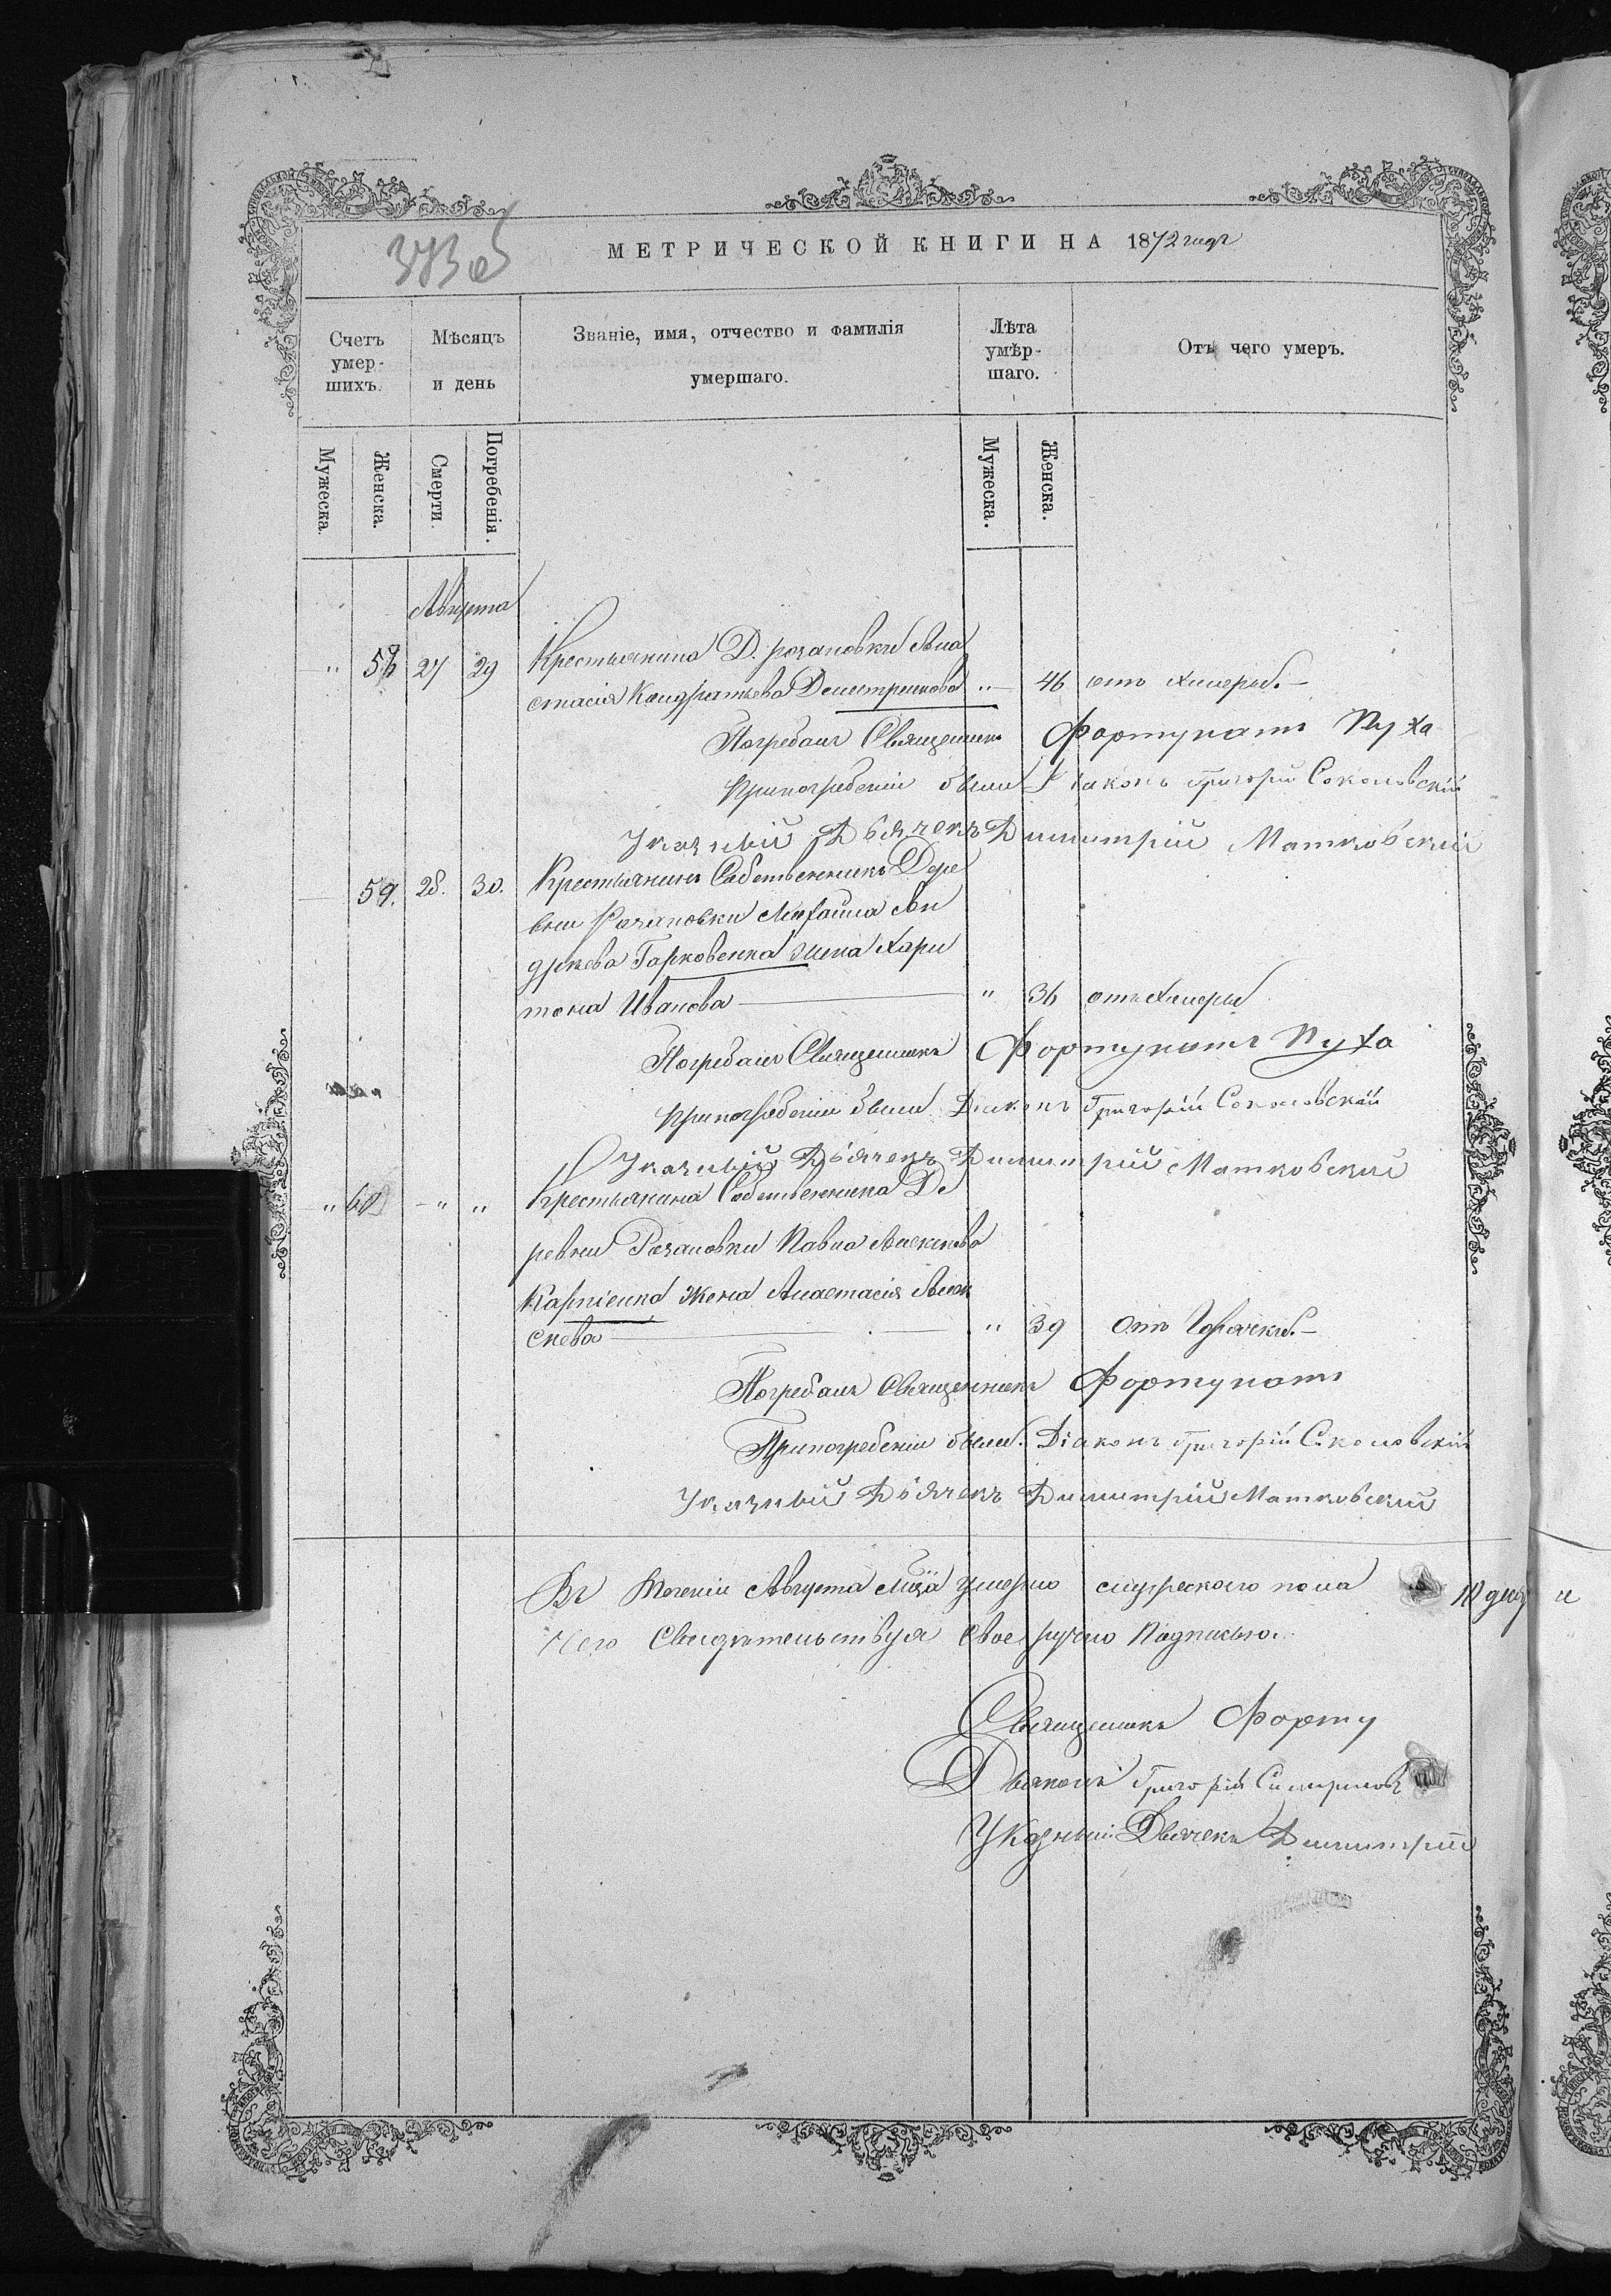 373 об
МЕТРИЧЕСКОЙ КНИГИ НА 1872 годъ
Счетъ умер-шихъ.
Мѣсяцъ и день
Званіе, имя, отчество и фамилія умершаго.
Лѣта умѣр-шаго.
Отъ чего умеръ.
Мужеска.
Женска.
Смерти.
Погребенія.
Мужеска.
Женска.
Августа
" 58 27 29 Крестьянина Д. розановки Ана
стасія Кандратьева „ 46 отъ холеры.
Погребалъ Священникъ Фортунатъ Пуха
При погребеніи были Діаконъ Григорій Соколовскій
Указный Дьячекъ Димитрій Матковскій
59. 28. 30. Крестьянинъ Собственникъ Дере
вни Розановки Михаила Ан
дреева Гарковенка жена Хари
тона Иванова " 36 отъ холеры
Погребалъ Священникъ Фортунатъ Пуха
При погребеніи были Діаконъ Григорій Соколовскій
Указный Дьячекъ Димитрій Матковскій
" 60 " " Крестьянина Собственника Де
ревни Розановки Павла Алексѣева
Карпіенка жена Анастасія Алек
сѣева " 39 Отъ Горячки.
Погребалъ Священникъ Фортунатъ
При погребеніи были. Діаконъ Григорій Соколовскій
Указный Дьячекъ Димитрій Матковскій
Въ теченіи Августа умерло мужескаго пола 10 душ и
Чего Свидѣтельствуя Своеручно Подписью.
Священникъ Форту
Дьяконъ Григорій
Указный Дьячекъ Димитрій